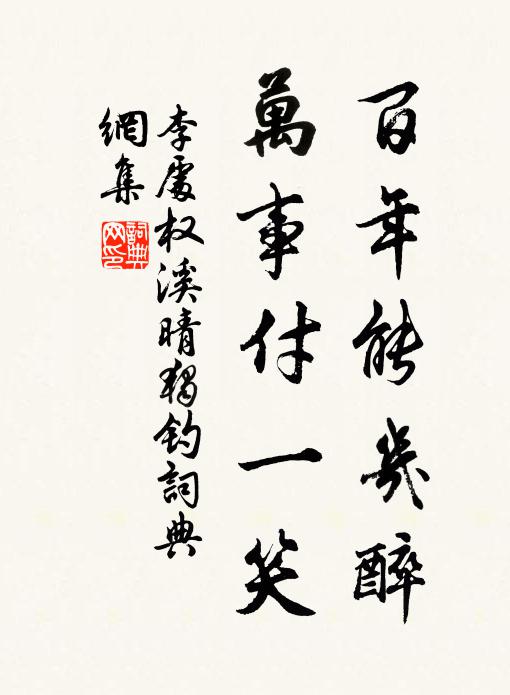 百年能幾醉
萬事付一笑
李處权溪晴獨釣詞典
網集
詞典網印